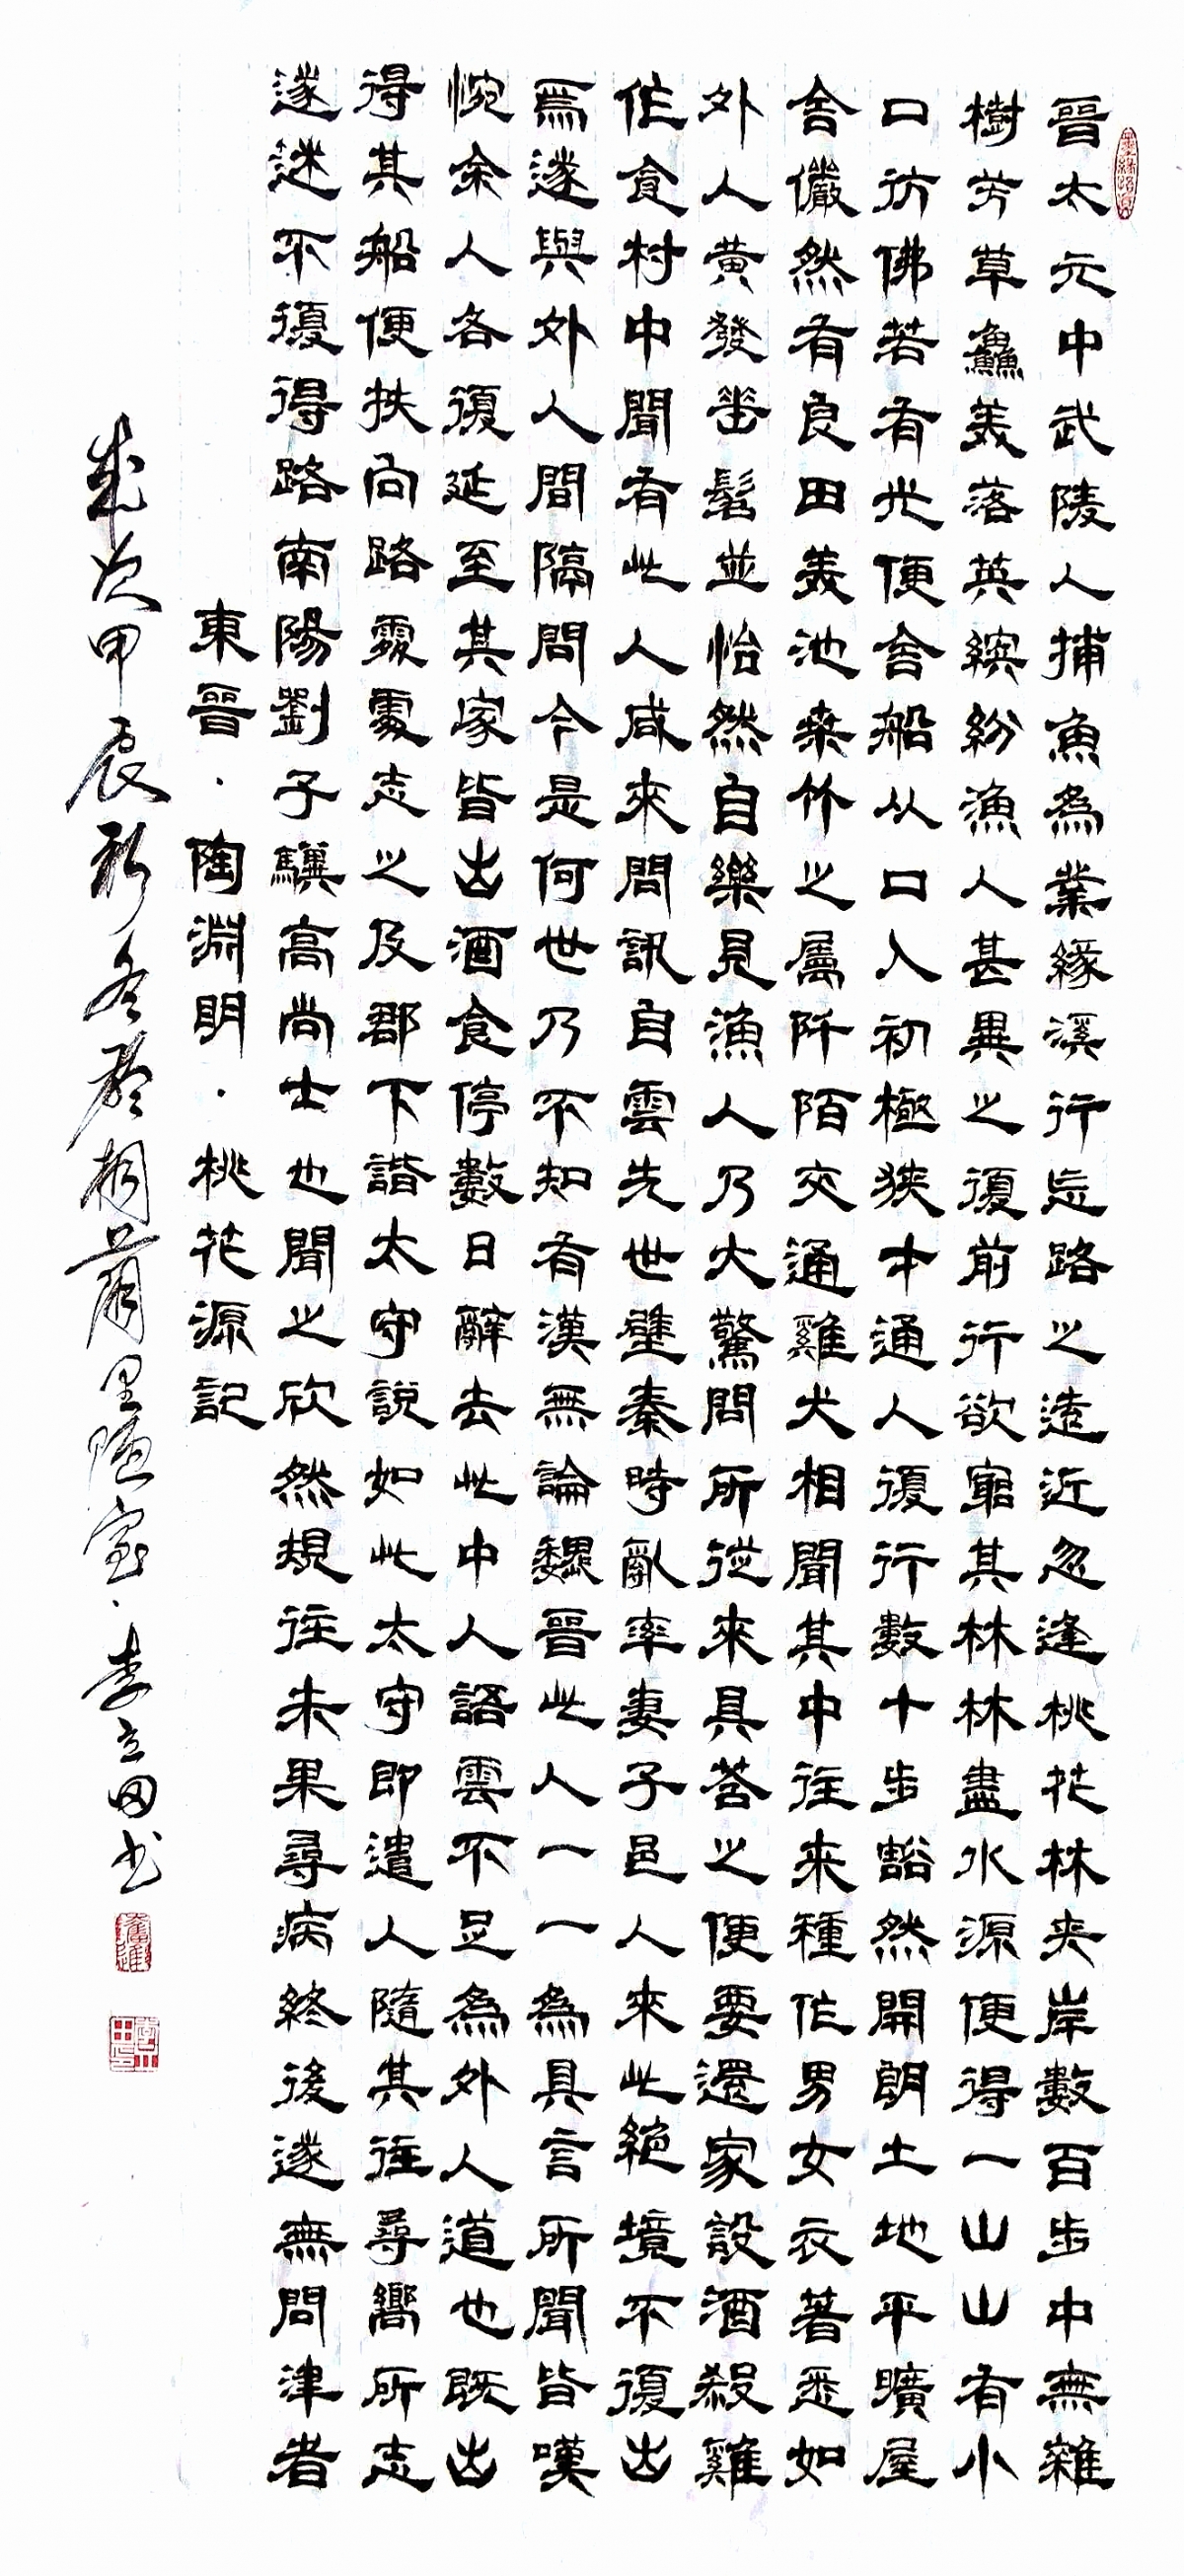 晉太元中武陵人捕魚為業緣溪行忘路之遠近忽逢桃花林夾岸數百步中無雜
樹芳草鱻美落英繽紛漁人甚異之復前行欲窮其林林盡水源便得一山山有小
口彷佛若有光便舍船从口入初極狹才通人復行數十步豁然開朗土地平曠屋
舍儼然有良田美池桑竹之屬阡陌交通雞犬相聞其中往来種作男女衣著悉如
外人黄發垂髫並怡然自樂見漁人乃大驚問所從來具荅之便要還家設酒殺雞
作食村中聞有此人咸來問訊自雲先世避秦時亂率妻子邑人來此絕境不復出
焉遂與外人間隔問今是何世乃不知有漢無論魏晉此人一一為具言所聞皆嘆
惋余人各復延至其家皆出酒食停數日辭去此中人語雲不足為外人道也既出
得其船便扶向路處處志之及郡下詣太守說如此太守即遣人隨其往尋嚮所志
遂迷不復得路南陽劉子驥高尚士也聞之欣然規往未果尋病終後遂無問津者
東晉·陶淵明·桃花源記
歲次甲辰 冬 李立田书